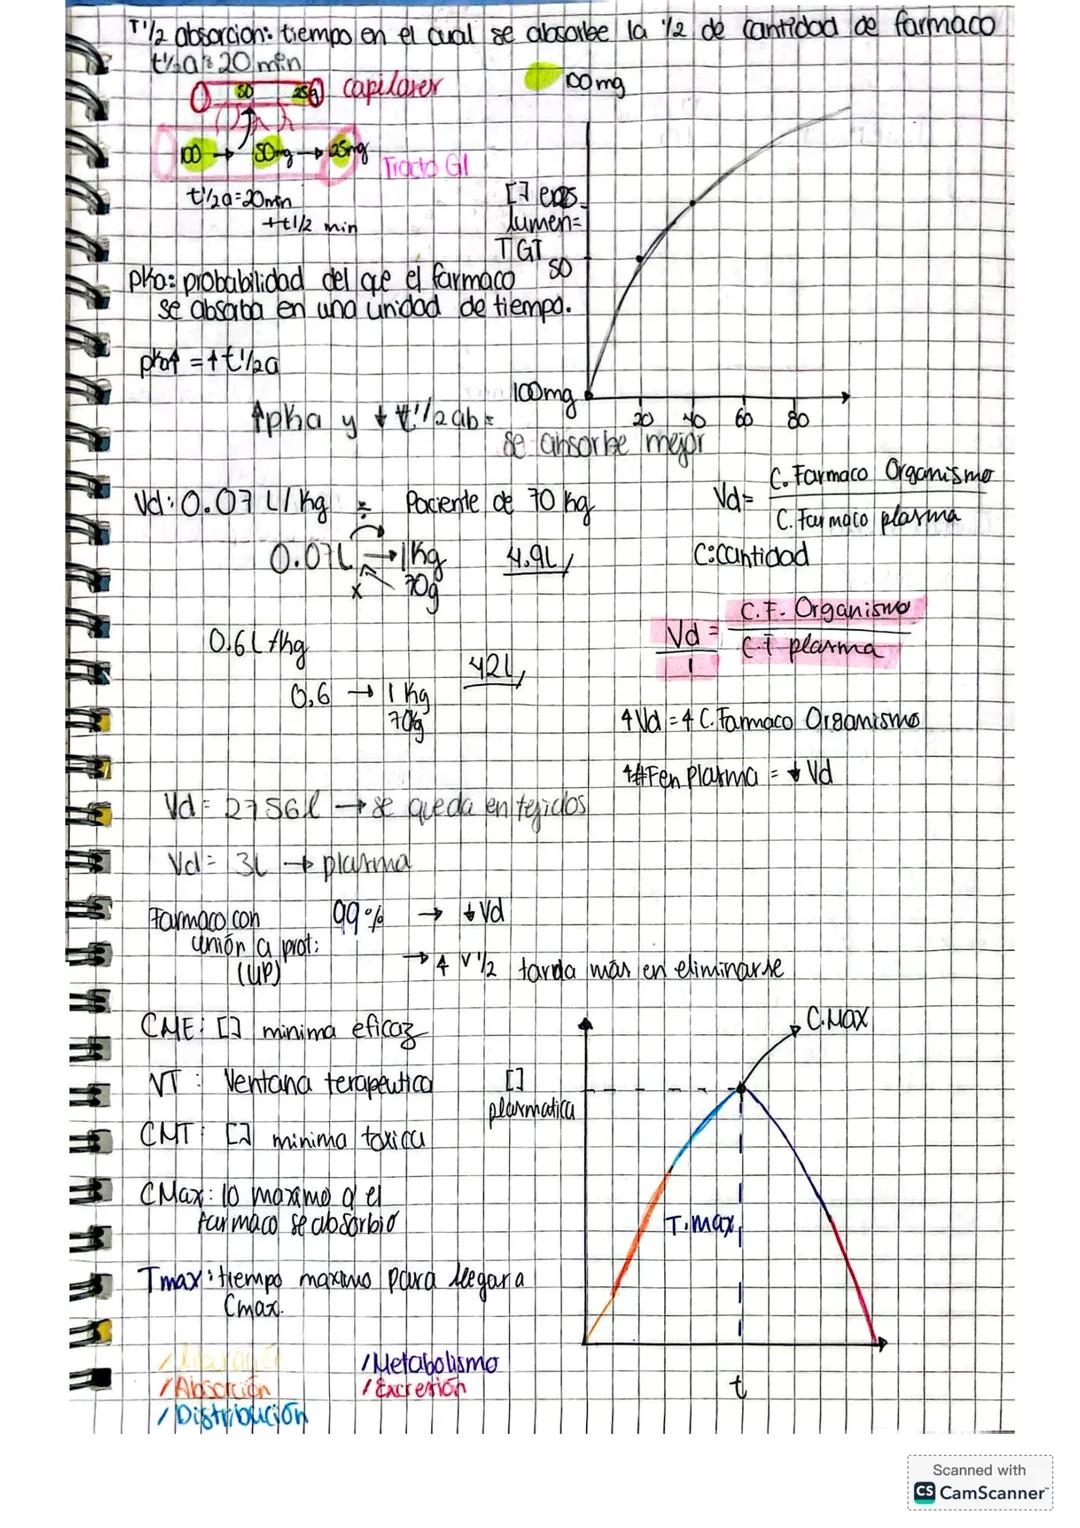 T½ absorcion: tiempo en el cual se absorbe la ½ de cantidad de farmaco
t½a= 20 min
50 25
capilares
100mg
100 → 50mg → 25mg
Tracto GI
t½a=20min
+t1/2 min
[]
lumen=
TGT
50
100mg
20 40 60 80
pka: probabilidad del que el farmaco
se absorba en una unidad de tiempo.
pka↑ =↑t½a
↑pka y ↓ t½ab=
se absorbe mejor
Vd: 0.07 L/kg ÷ Paciente de 70 kg
0.07L → 1kg
x 70g
4.9L
Vd= C. Farmaco Organismo
C. Farmaco plasma
C: cantidad
0.6L/kg
0,6 → 1 kg
70kg
42L
Vd = C.F. Organismo
1 C.F plasma
↑Vd = ↑ C. Farmaco Organismo
↑#F en plasma = ↓ Vd
Vd= 2756l → se queda en tejidos
Vd= 3L → plasma
Farmaco con
unión a prot:
(UP)
99% → ↓Vd
→ ↑ V½ tarda más en eliminarse
CME: [] minima eficaz
VT: Ventana terapeutica
CMT: [] minima toxica
CMax: lo maximo q el
farmaco se absorbio
Tmax: tiempo maximo para llegar a
Cmax.
C.Max
[]
plasmatica
T.max
t
/Absorción
/Distribución
/Metabolismo
/Excreción
Scanned with
CS CamScanner